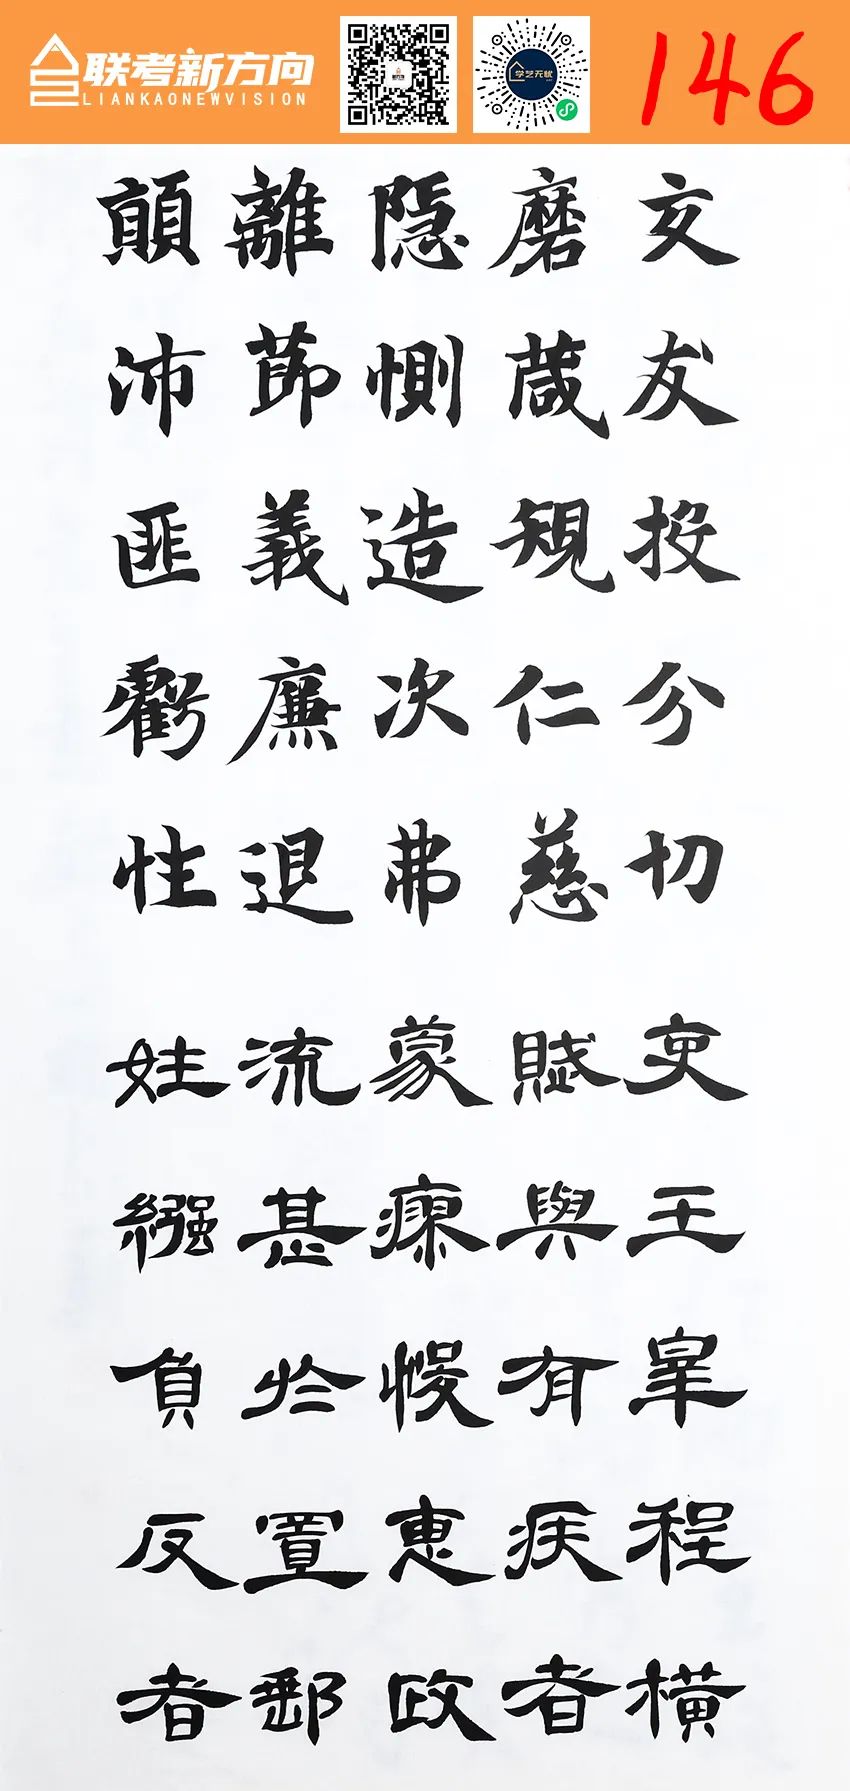 联考新方向
LIANKAONEWVISION
学艺无忧
146
交友投分切
磨箴規仁慈
隱惻造次弗
離節義廉退
顛沛匪虧性
吏王皋程橫
賦與有疾者
蒙瘳悛惠政
流甚於置郵
姓繦負反者